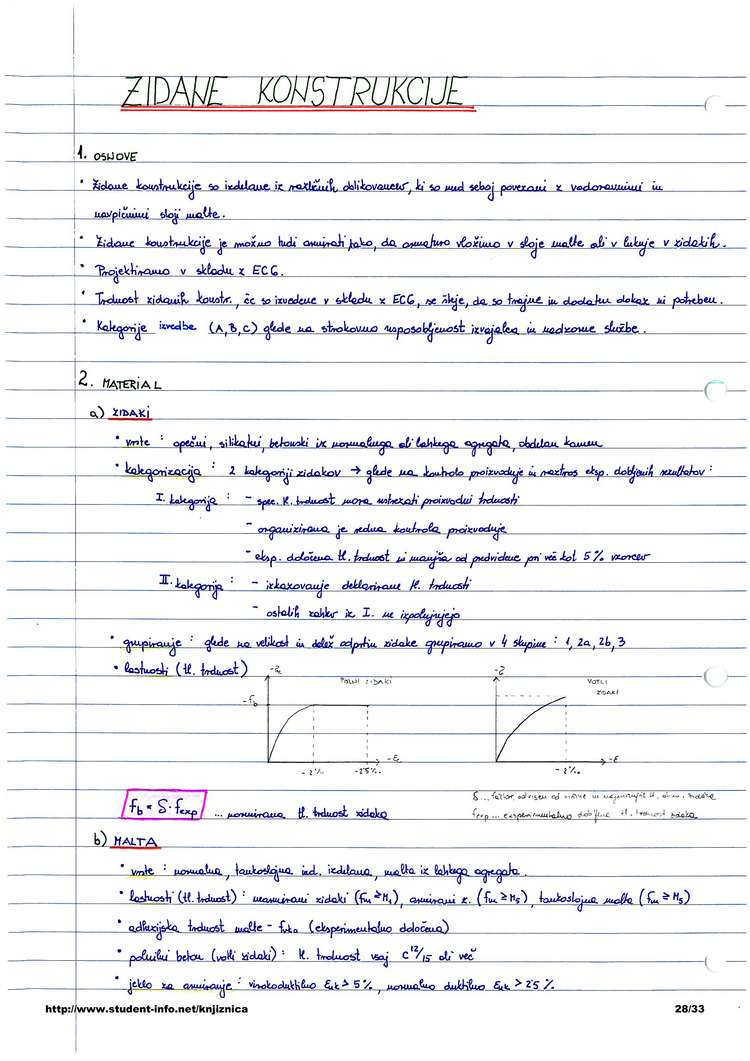 ZIDANE KONSTRUKCIJE
1. OSNOVE
• Zidane konstrukcije so izdelane iz različnih oblikovancev, ki so med seboj povezani z vodoravnimi in
navpičnimi sloji malte.
• Zidane konstrukcije je možno tudi armirati tako, da armaturo vložimo v sloje malte ali v luknje v zidakih.
• Projektiramo v skladu z EC6.
• Trdnost zidanih konstr., če so izvedene v skladu z EC6, se šteje, da so trajne in dodaten dokaz ni potreben.
• Kategorije izvedbe (A,B,C) glede na strokovno usposobljenost izvajalca in nadzorne službe.
2. MATERIAL
a) ZIDAKI
• vrste : opečni, silikatni, betonski iz normalnega ali lahkega agregata, obdelan kamen
• kategorizacija : 2 kategoriji zidakov → glede na kontrolo proizvodnje in raztros eksp. dobljenih rezultatov :
I. kategorija : - spec. tl. trdnost mora ustrezati proizvodni trdnosti
- organizirana je redna kontrola proizvodnje
- eksp. določena tl. trdnost ni manjša od predvidene pri več kot 5% vzorcev
II. kategorija : - izkazovanje deklarirane tl. trdnosti
- ostalih zahtev iz I. ne izpolnjujejo
• grupiranje : glede na velikost in delež odprtin zidake grupiramo v 4 skupine : 1, 2a, 2b, 3
• lastnosti (tl. trdnost)
POLNI ZIDAKI
VOTLI
ZIDAKI
-fb
-ε
-ε
-2‰
-2‰
fb = δ · fexp ... normirana tl. trdnost zidaka
δ ... faktor, odvisen od višine in najmanjše tl. dim. zidaka
fexp ... eksperimentalno dobljena tl. trdnost zidaka
b) MALTA
• vrste : normalna, tankoslojna ind. izdelana, malta iz lahkega agregata.
• lastnosti (tl. trdnost) : nearmirani zidaki (fm ≥ M1), armirani z. (fm ≥ M5), tankoslojna malta (fm ≥ M5)
• adhezijska trdnost malte - fvko (eksperimentalno določena)
• polnilni beton (votli zidaki) : tl. trdnost vsaj C12/15 ali več
• jeklo za armiranje : visokoduktilno εuk > 5%, normalno duktilno εuk > 2.5%.
http://www.student-info.net/knjiznica
28/33